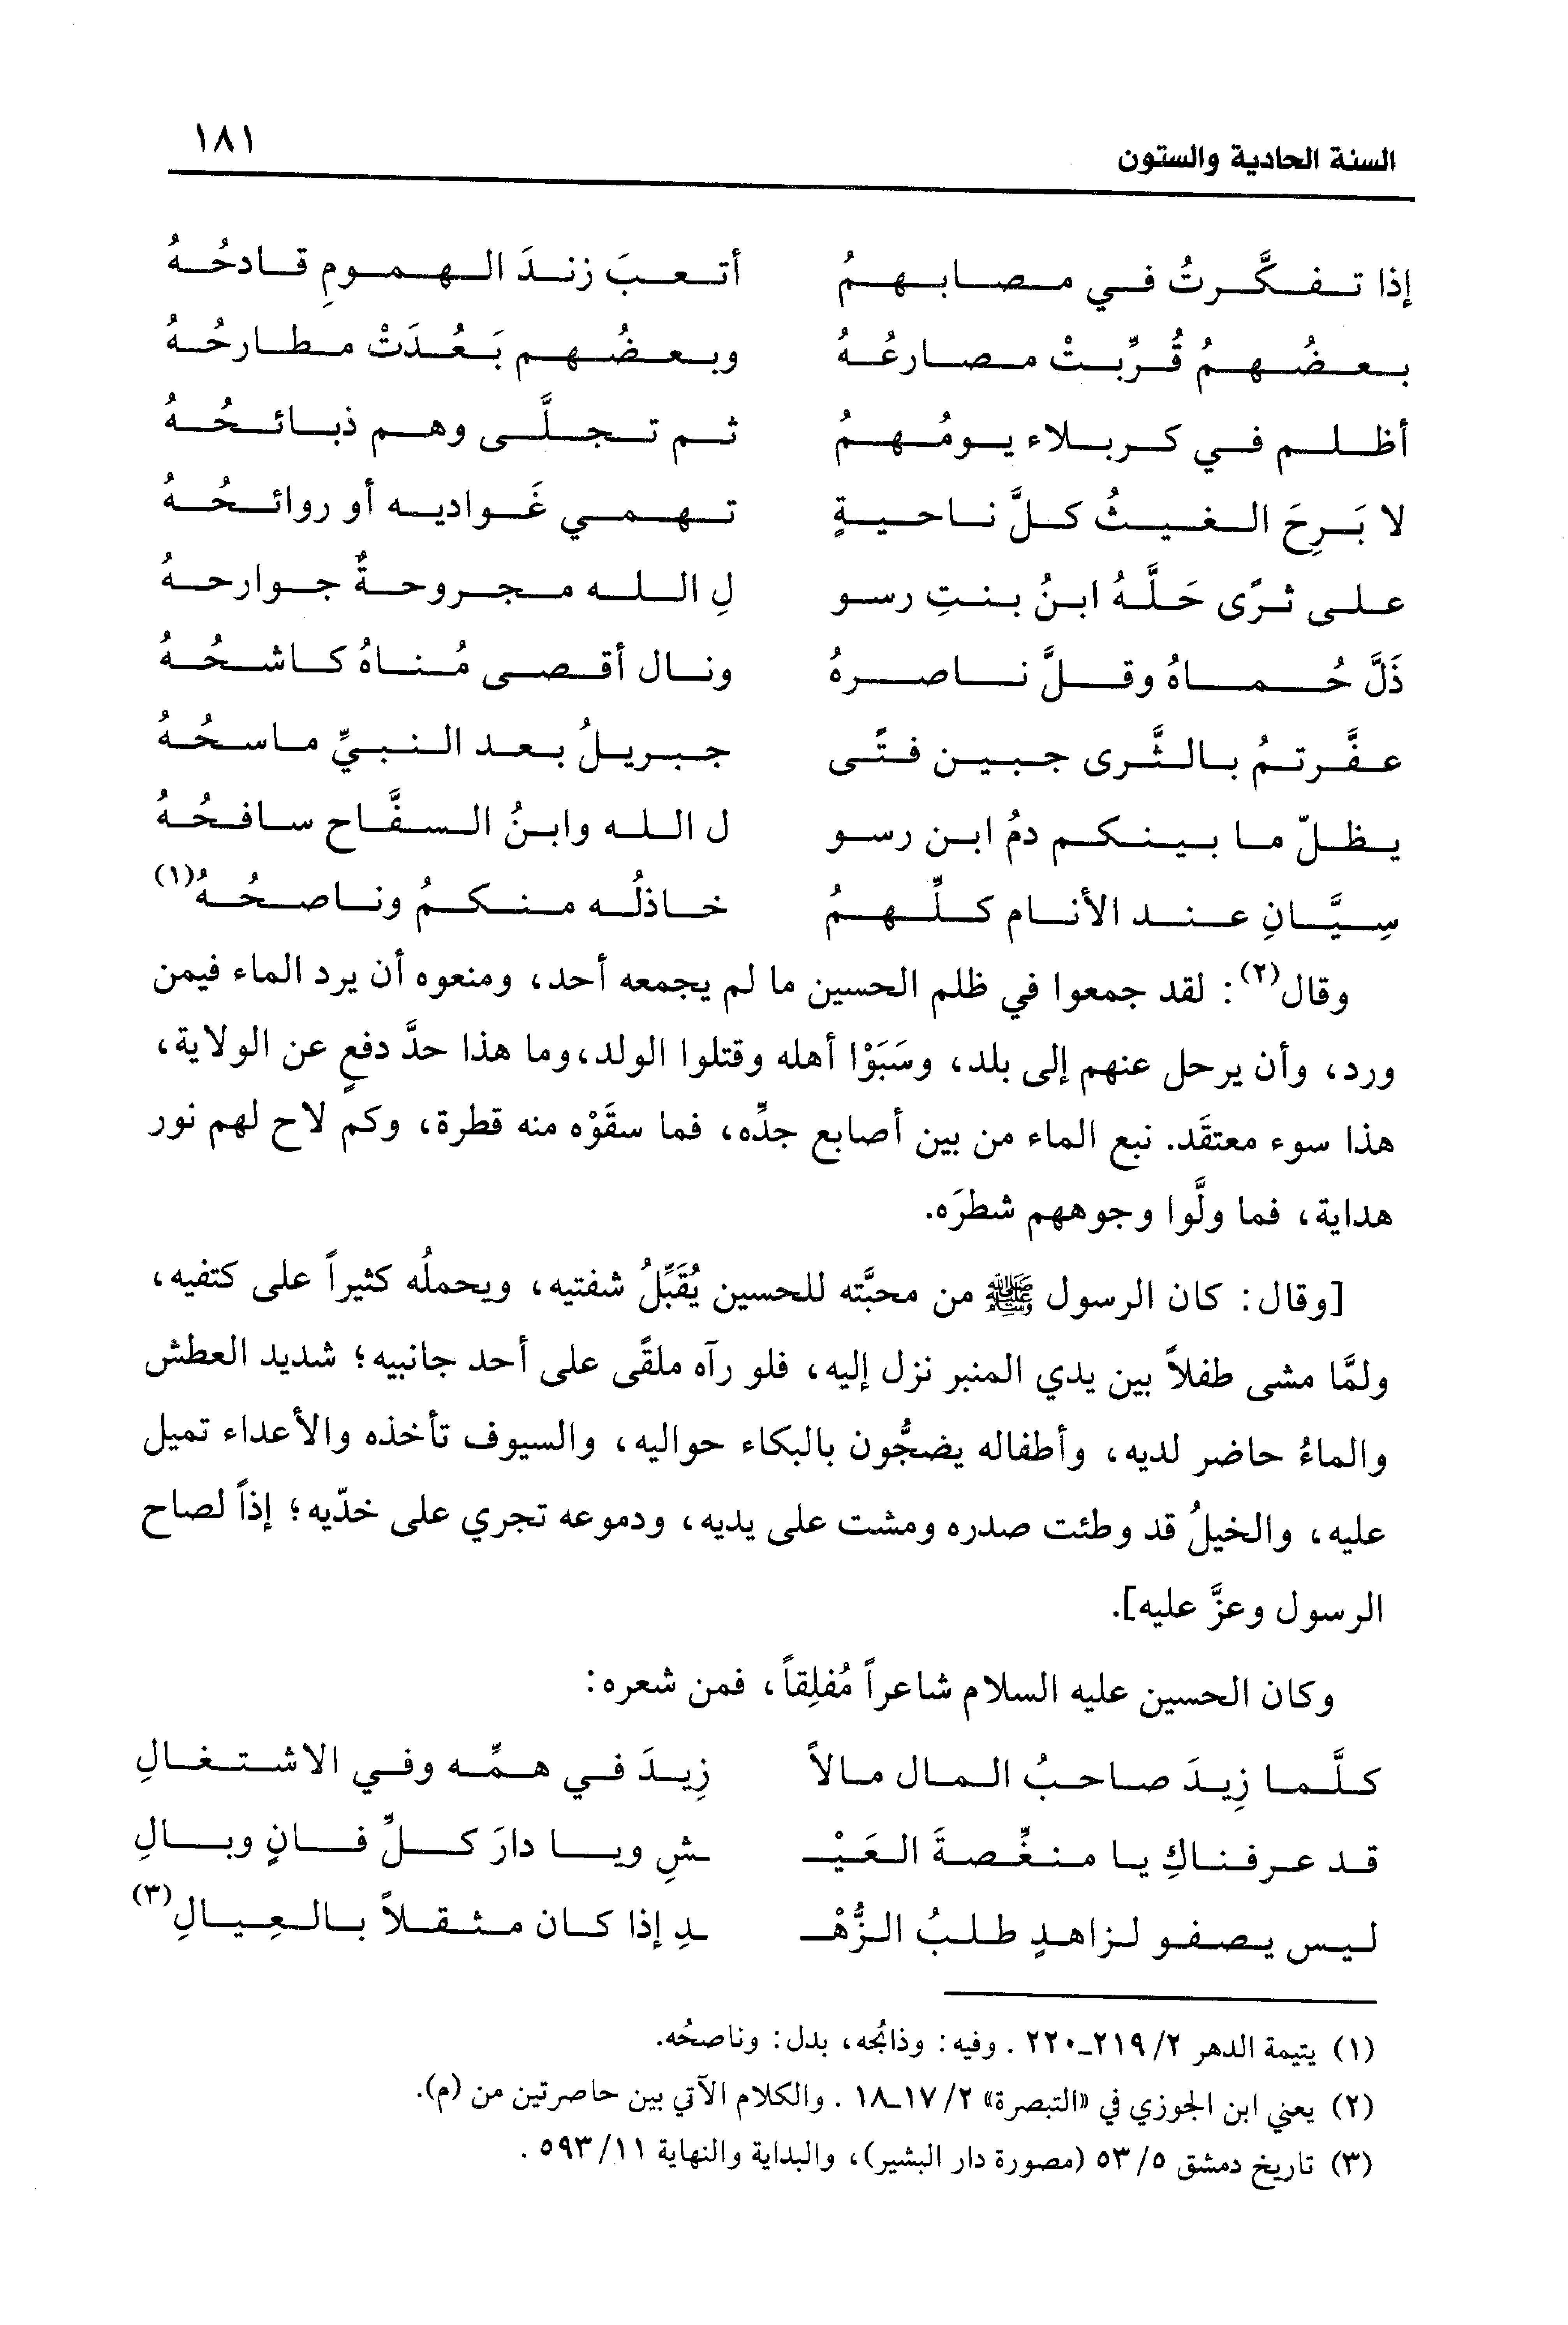 السنة الحادية والستون ١٨١
إذا تفكَّرتُ في مصابهمُ أتعبَ زندَ الهمومِ قادحُهُ
بعضُهمُ قُرِّبتْ مصارعُهُ وبعضُهم بَعُدَتْ مطارحُهُ
أظلم في كربلاء يومُهمُ ثم تجلَّى وهم ذبائحُهُ
لا بَرِحَ الغيثُ كلَّ ناحيةٍ تهمي غَواديه أو روائحُهُ
على ثرًى حَلَّهُ ابنُ بنتِ رسو لِ الله مجروحةٌ جوارحهُ
ذَلَّ حُماهُ وقلَّ ناصرهُ ونال أقصى مُناهُ كاشحُهُ
عفَّرتمُ بالثَّرى جبين فتًى جبريلُ بعد النبيِّ ماسحُهُ
يظلّ ما بينكم دمُ ابن رسو ل الله وابنُ السفَّاح سافحُهُ
سِيَّانِ عند الأنام كلِّهمُ خاذلُه منكمُ وناصحُهُ(١)
وقال(٢): لقد جمعوا في ظلم الحسين ما لم يجمعه أحد، ومنعوه أن يرد الماء فيمن
ورد، وأن يرحل عنهم إلى بلد، وسَبَوْا أهله وقتلوا الولد،وما هذا حدَّ دفعٍ عن الولاية،
هذا سوء معتقَد. نبع الماء من بين أصابع جدِّه، فما سقَوْه منه قطرة، وكم لاح لهم نور
هداية، فما ولَّوا وجوههم شطرَه.
[وقال: كان الرسول ﷺ من محبَّته للحسين يُقَبِّلُ شفتيه، ويحملُه كثيراً على كتفيه،
ولمَّا مشى طفلاً بين يدي المنبر نزل إليه، فلو رآه ملقًى على أحد جانبيه؛ شديد العطش
والماءُ حاضر لديه، وأطفاله يضجُّون بالبكاء حواليه، والسيوف تأخذه والأعداء تميل
عليه، والخيلُ قد وطئت صدره ومشت على يديه، ودموعه تجري على خدّيه؛ إذاً لصاح
الرسول وعزَّ عليه].
وكان الحسين عليه السلام شاعراً مُفلِقاً، فمن شعره:
كلَّما زِيدَ صاحبُ المال مالاً زِيدَ في همِّه وفي الاشتغالِ
قد عرفناكِ يا منغِّصةَ العَيْـ ـشِ ويا دارَ كلِّ فانٍ وبالِ
ليس يصفو لزاهدٍ طلبُ الزُّهْـ ـدِ إذا كان مثقلاً بالعِيالِ(٣)
(١) يتيمة الدهر ٢/ ٢١٩-٢٢٠ . وفيه: وذابُحه، بدل: وناصحُه.
(٢) يعني ابن الجوزي في «التبصرة» ٢/ ١٧-١٨ . والكلام الآتي بين حاصرتين من (م).
(٣) تاريخ دمشق ٥/ ٥٣ (مصورة دار البشير)، والبداية والنهاية ١١/ ٥٩٣ .